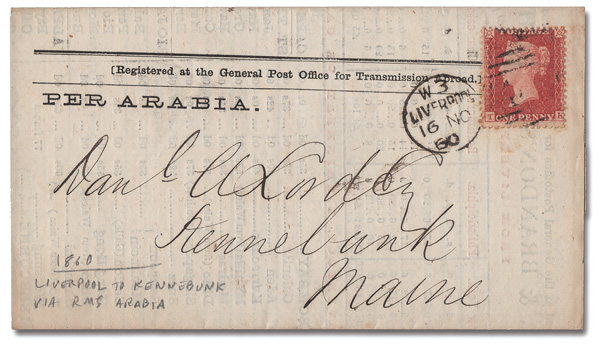 [Registered at the General Post Office for Transmission Abroad.]
PER ARABIA.
W 3
LIVERPOOL
16 NO
60
ONE PENNY
Danl
Kennebunk
Maine
1860
LIVERPOOL TO KENNEBUNK
VIA RMS ARABIA